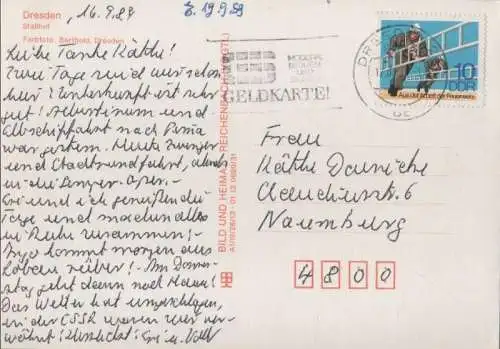 Dresden, 16.9.89
E. 19.9.89
Stallhof
Farbfoto: Berthold, Dresden
Liebe Tante Käthe!
Zwei Tage sind wir schon
hier! Unterkunft ist sehr
gut! Albertinum und
Elbschiffahrt nach Pirna
war gestern. Heute Zwinger
und Stadtrundfahrt, abends
in die Semper-Oper.
und ich genießen die
Tage und machen alles
in Ruhe zusammen!
kommt morgen aus
Löbau rüber! – Am Donners-
tag geht dann nach Hause!
Das Wetter hat umgeschlagen,
in der ČSSR waren wir ver-
wöhnt! Herzlichst!
BILD UND HEIMAT REICHENBACH (VOGTL)
MODERN
BEQUEM
UND
GELDKARTE!
DRESDEN
Aus der Arbeit der Feuerwehr
10
DDR
Frau
Käthe
6
Naumburg
4800